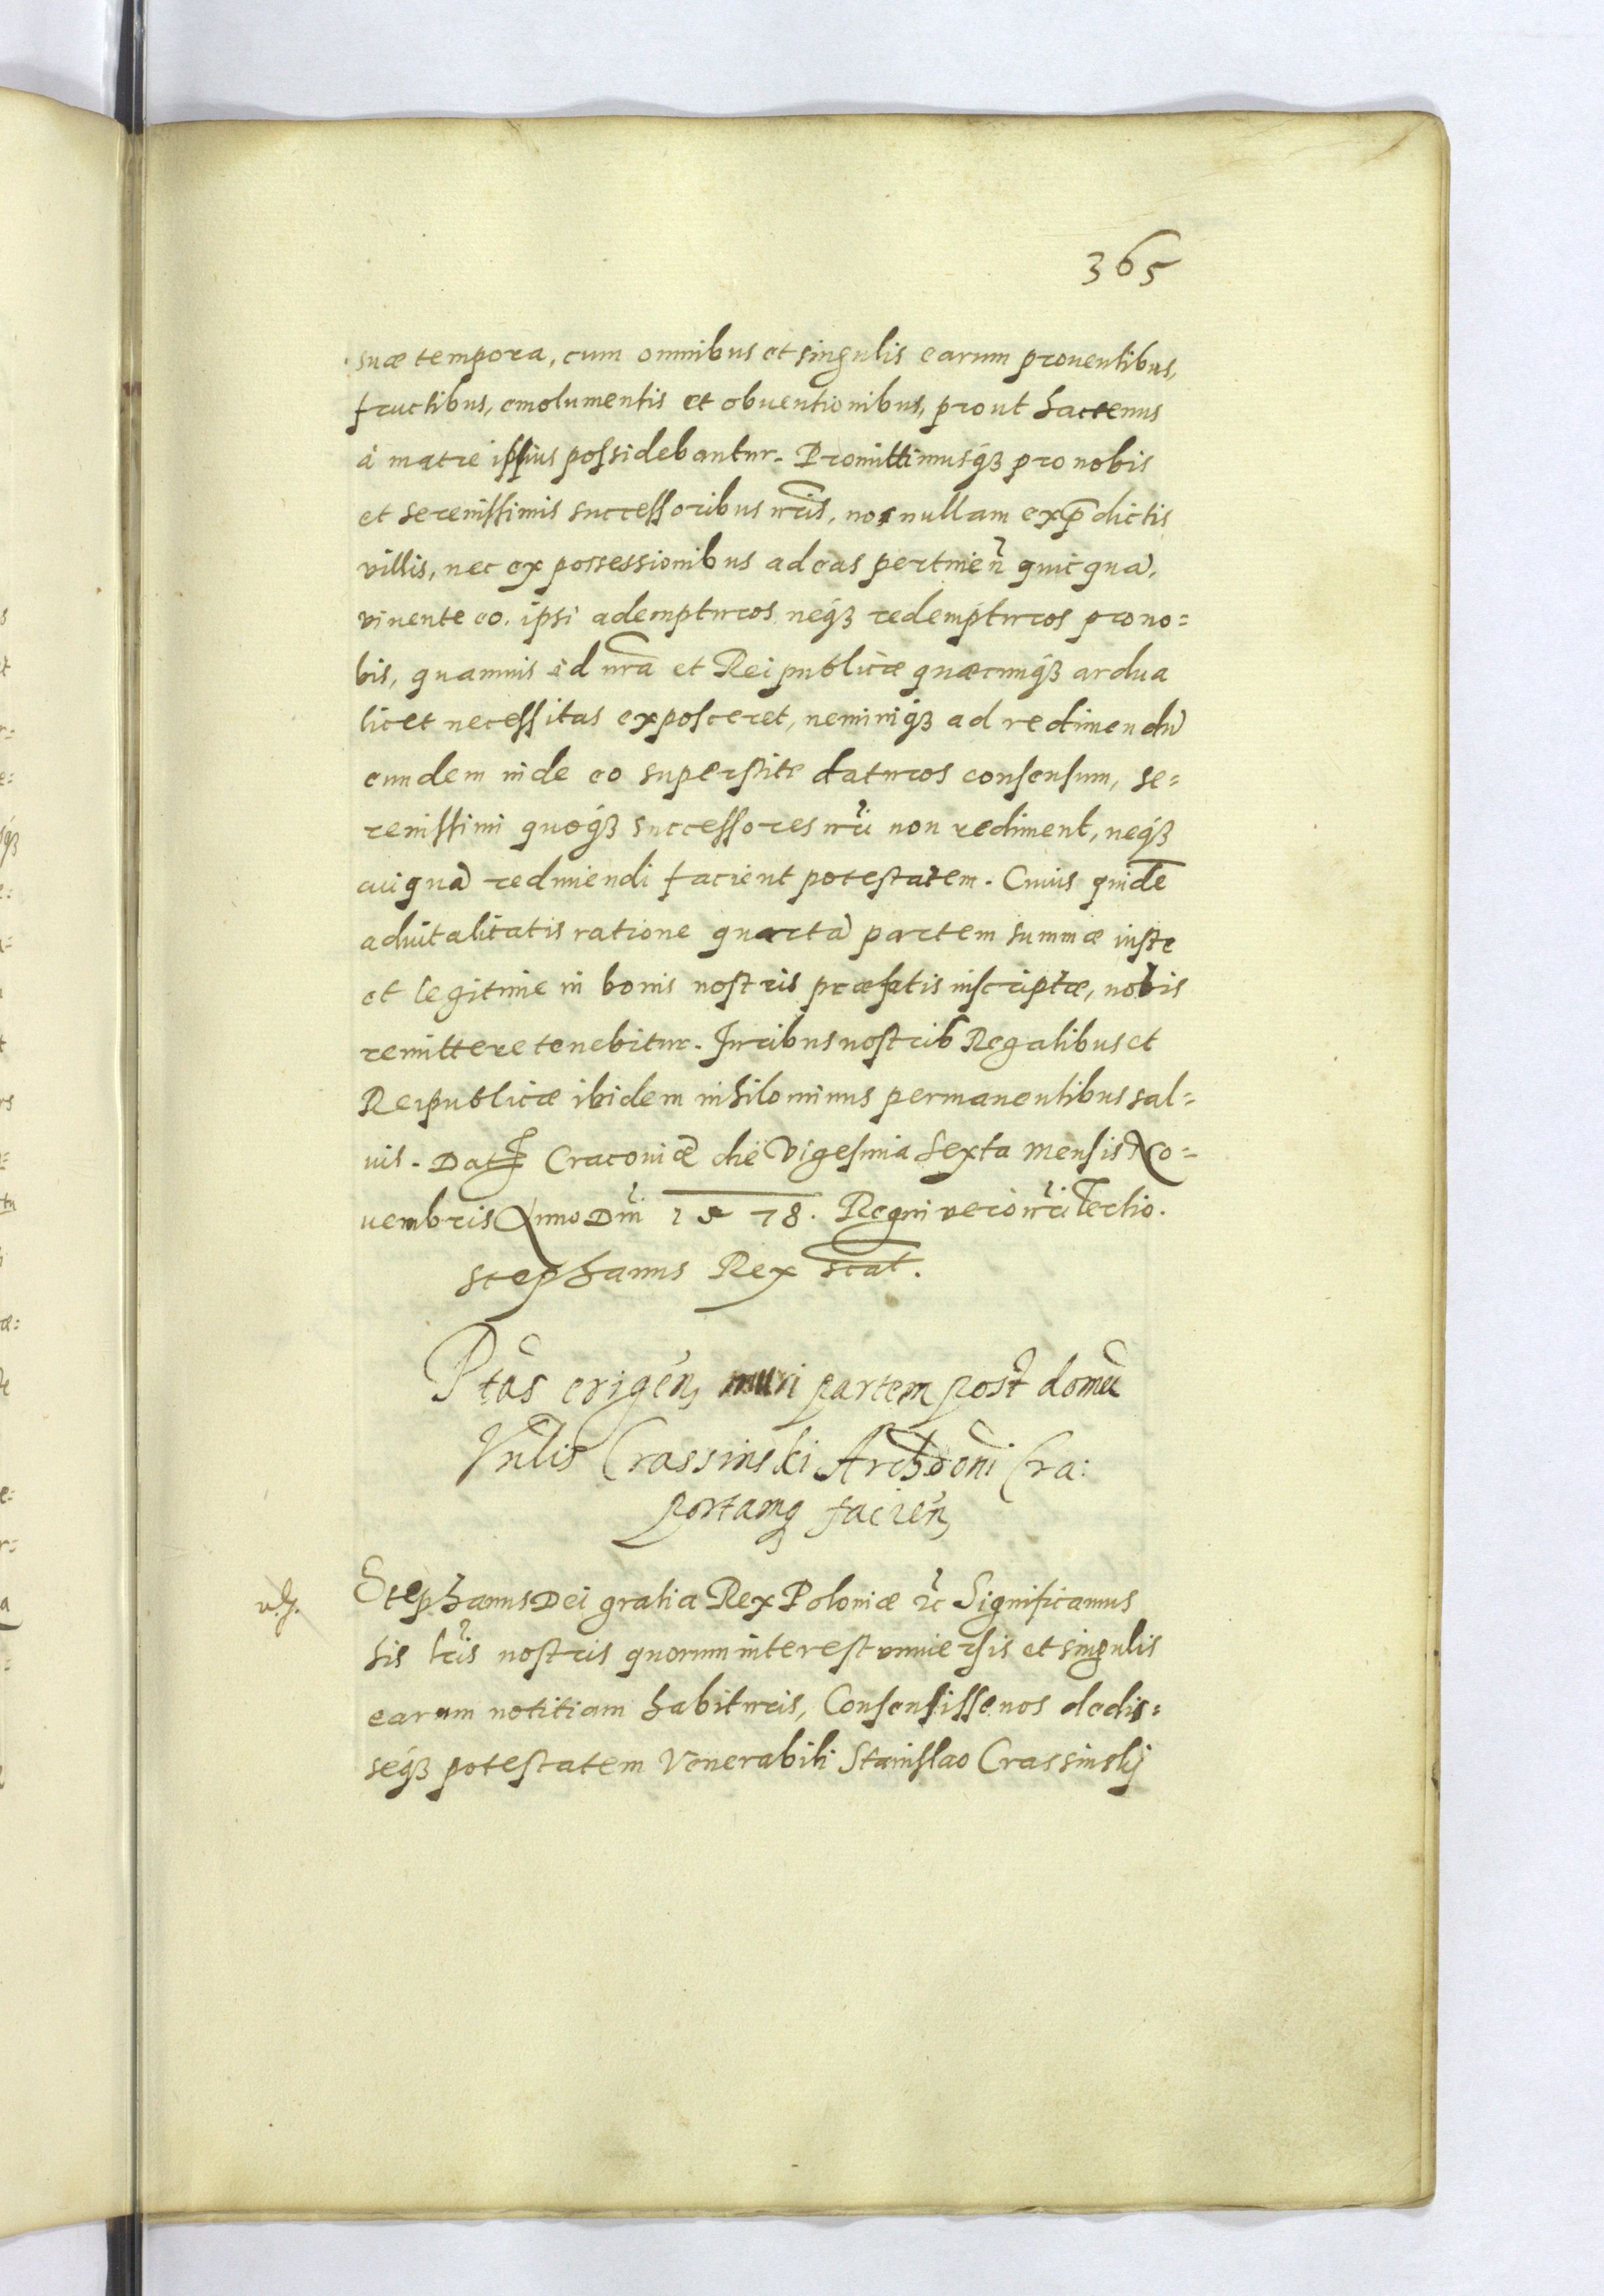 365
suæ tempora, cum omnibus et singulis earum prouentibus,
fructibus, emolumentis et obuentionibus, prout hactenus
à matre ipsius possidebantur. Promittimusq́ꝫ pro nobis
et serenissimis successoribus nr̃is, nos nullam ex p̃dictis
villis, nec ex possessionibus ad eas pertineñ quicquã,
viuente eo, ipsi adempturos neq́ꝫ redempturos pro no=
bis, quamuis id nr̃a et Reipublicæ quæcunq́ꝫ ardua
licet necessitas exposceret, neminiq́ꝫ ad redimendũ
eundem inde eo superstite daturos consensum, se=
renissimi quoq́ꝫ successores nr̃i non rediment, neq́ꝫ
cuiquã redimendi facient potestatem. Cuius quidẽ
aduitalitatis ratione quartã partem summæ iuste
et legitime in bonis nostris præfatis inscriptæ, nobis
remittere tenebitur. Juribus nostris Regalibus et
Reipublicæ ibidem nihilominus permanentibus sal=
uis. Dat Cracouiæ die Vigesima Sexta mensis No=
uembris Anno Dñi 1578. Regni vero nr̃i Tertio.
Stephanus Rex scãt.
Ptãs erigeń, muri partem post domũ
Vnlis Crassinski Archdoni Cra:
portamq facień,
Stephanus Dei gratia Rex Poloniæ ꝛc̃ Significamus
his lr̃is nostris quorum interest vniuersis et singulis
earum notitiam habituris, Consensisse nos dedis=
seq́ꝫ potestatem Venerabili Stanislao Crassinskj